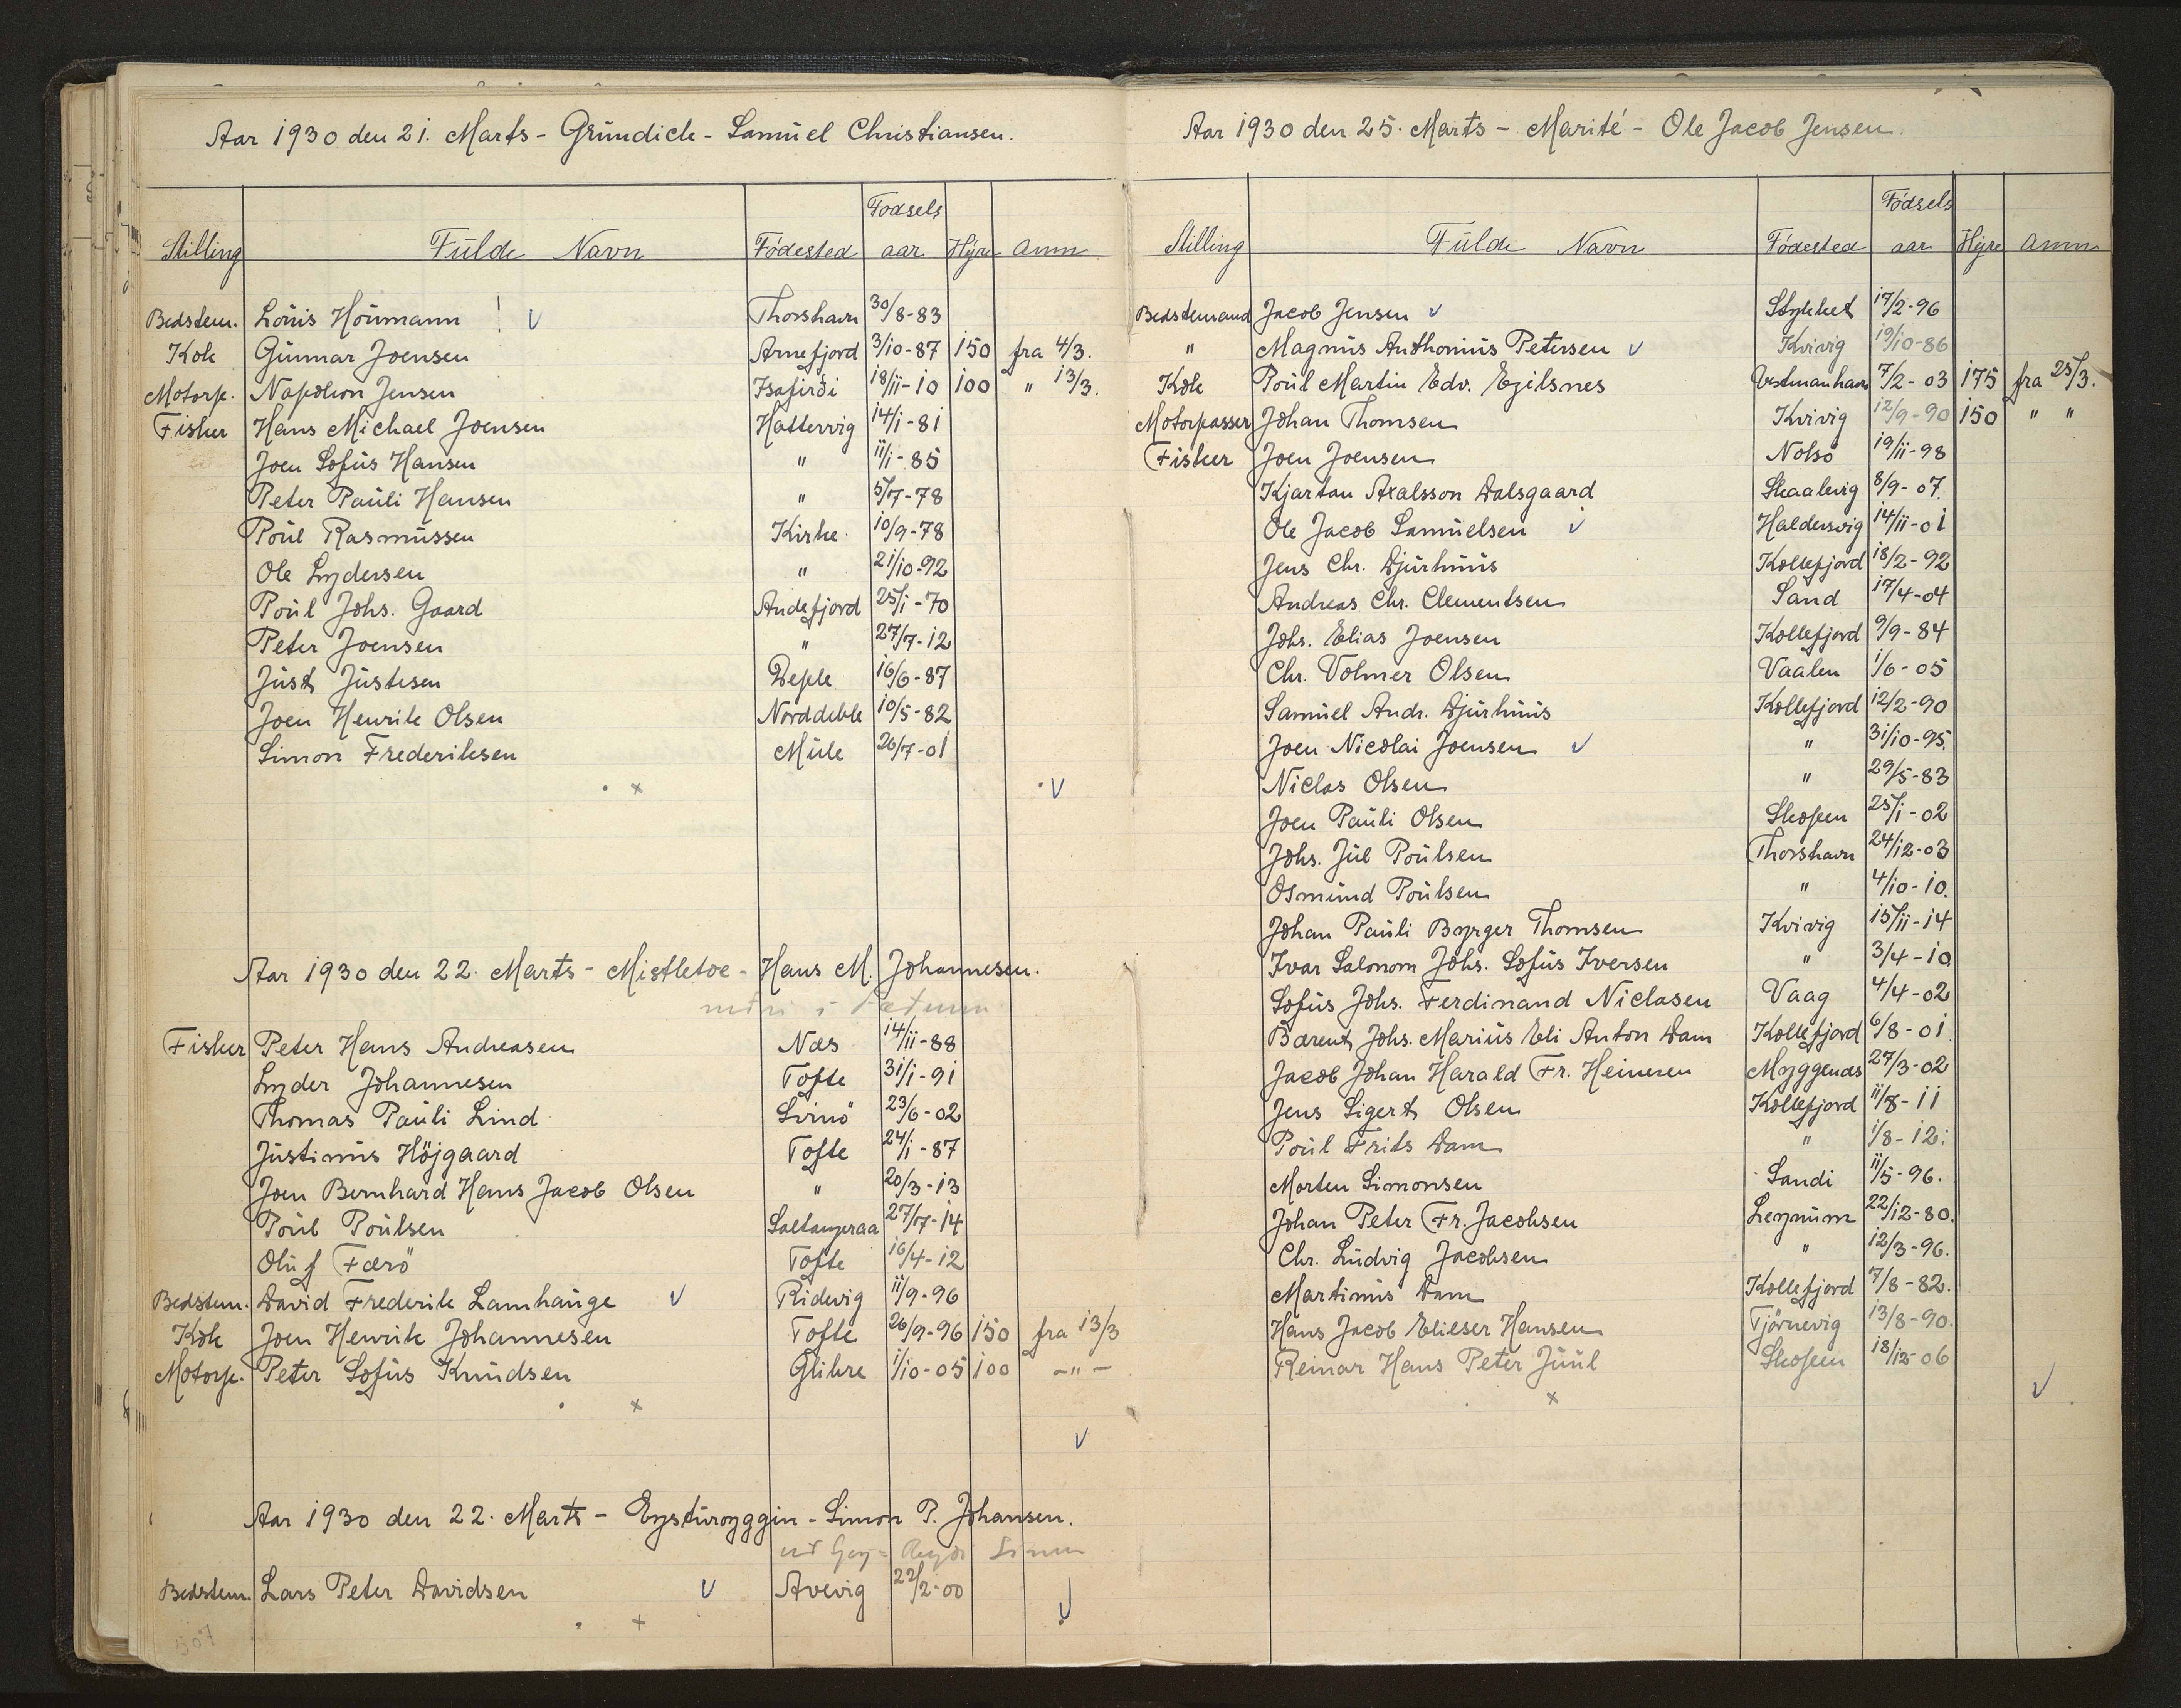 Aar 1930 den 21. Marts - Grúndick - Samúel Christiansen.
Stilling Fúlde Navn Födested Födsels aar Hýre Anm.
Bedstem. Lóúis Hóúmann ! V Thorshavn 30/8-83
Kok Gúnnar Joensen Arnefjord 3/10-87 150 fra 4/3.
Motorp. Napoleon Jensen Isafirði 18/11-10 100 " 13/3.
Fisker Hans Michael Joensen Hattervig 14/1-81
Joen Sofús Hansen " 11/1-85
Peter Páúli Hansen " 5/7-78
Poúl Rasmússen Kirke 10/9-78
Ole Lydersen " 21/10-92
Poúl Johs. Gaard Andefjord 25/1-70
Peter Joensen " 27/7-12
Júst Jústesen Deple 16/6-87
Joen Henrik Olsen Norddeble 10/5-82
Simon Frederiksen Múle 26/7-01
x V
Aar 1930 den 22. Marts - Mistletoe - Hans M. Johannesen.
Fisker Peter Hans Andreasen Næs 14/11-88
Lyder Johannesen Tofte 31/1-91
Thomas Paúli Lind Svinö 23/6-02
Jústinús Höjgaard Tofte 24/1-87
Joen Bernhard Hans Jacob Olsen " 20/3-13
Poúl Poúlsen Saltangeraa 27/7-14
Olúf Færö Tofte 16/4-12
Bedstem. David Frederik Lamhaúge V Ridevig 11/9-96
Kok Joen Henrik Johannesen Tofte 26/9-96 150 fra 13/3
Motorp. Peter Sofús Knúdsen Glibre 1/10-05 100 -"-
x
V
Aar 1930 den 22. Marts - Eystúroyggin - Simon P. Johansen.
Bedstem. Lars Peter Davidsen V Avevig 22/2-00
x V
507
Aar 1930 den 25. Marts - Marité - Ole Jacob Jensen.
Stilling Fúlde Navn Födested Födsels aar Hýre Anm
Bedstemand Jacob Jensen V Stykket 17/2-96
" Magnús Anthoniús Petersen V Kvivig 19/10-86
Kok Poúl Martin Edv. Egilsnes Vestmanhavn 7/2-03 175 fra 25/3.
Motorpasser Johan Thomsen Kvivig 12/9-90 150 " "
Fisker Joen Joensen Nolsö 19/11-98
Kjartan Axalsson Dalsgaard Skaalevig 8/9-07.
Ole Jacob Samúelsen V Haldersvig 14/11-01
Jens Chr. Djúrhúús Kollefjord 18/2-92
Andreas Chr. Clementsen Sand 17/4-04
Johs. Elias Joensen Kollefjord 9/9-84
Chr. Volmer Olsen Vaalen 1/6-05
Samúel Andr. Djúrhúús Kollefjord 12/2-90
Joen Nicolai Joensen V " 31/10-95.
Niclas Olsen " 29/5-83
Joen Paúli Olsen Skopen 25/1-02
Johs. Júl Poúlsen Thorshavn 24/12-03
Osmúnd Poúlsen " 4/10-10.
Johan Paúli Byrger Thomsen Kvivig 15/11-14
Ivar Salomom Johs. Sofús Iversen " 3/4-10
Sofús Johs. Ferdinand Niclasen Vaag 4/4-02
Barent Johs. Mariús Eli Anton Dam Kollefjord 6/8-01.
Jacob Johan Harald Fr. Heinesen Myggenæs 27/3-02
Jens Sigert Olsen Kollefjord 11/8-11
Poúl Frits Dam " 1/8-12.
Morten Simonsen Sandi 11/5-96.
Johan Peter Fr. Jacobsen Leynúm 22/12-80.
Chr. Lúdvig Jacobsen " 12/3-96.
Martinús Dam Kollefjord 7/8-82.
Hans Jacob Elieser Hansen Tjörnevig 13/8-90.
Reinar Hans Peter Júúl Skopen 18/12-06
x V